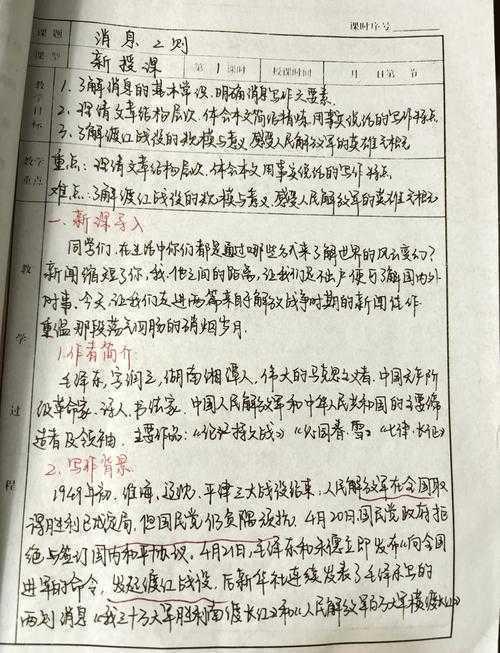 课时序号
课题 消息二则
课型 新授课 第1课时 授课时间 月 日第 节
教学目标
1.了解消息的基本常识,明确消息写作六要素
2.理清文章结构层次,体会本文简洁精炼,用事实说话的写作特点
3.了解渡江战役的规模与意义,感受人民解放军的英雄主义
教学重点
重点:理清文章结构层次,体会本文用事实说话的写作特点
难点:了解渡江战役的规模与意义,感受人民解放军的英雄
教学过程
一、新课导入
同学们,在生活中你们都是通过哪些方式来了解世界的风云变幻?
新闻缩短了你、我、他之间的距离,让我们足不出户便可了解国内外
时事,今天,让我们走进两篇来自解放战争时期的新闻佳作
重温那段荡气回肠的硝烟岁月.
1.作者简介
毛泽东,字润之,湖南湘潭人,伟大的马克思主义者,中国无产阶
级革命家、诗人、书法家,中国人民解放军和中华人民共和国的主要缔
造者及领袖.主要作品:《论持久战》《沁园春·雪》《七律·长征》
2.写作背景
1949年初,淮海、辽沈、平津三大战役结束,人民解放军在全国取
得胜利已成定局,但国民党仍负隅顽抗,4月20日,国民党政府拒
绝与签订国内和平协议,4月21日,毛泽东和朱德立即发布《向全国
进军的命令,发起渡江战役,后新华社连续发表了毛泽东写的
两则消息《我三十万大军胜利南渡长江》和《人民解放军百万大军横渡长江》